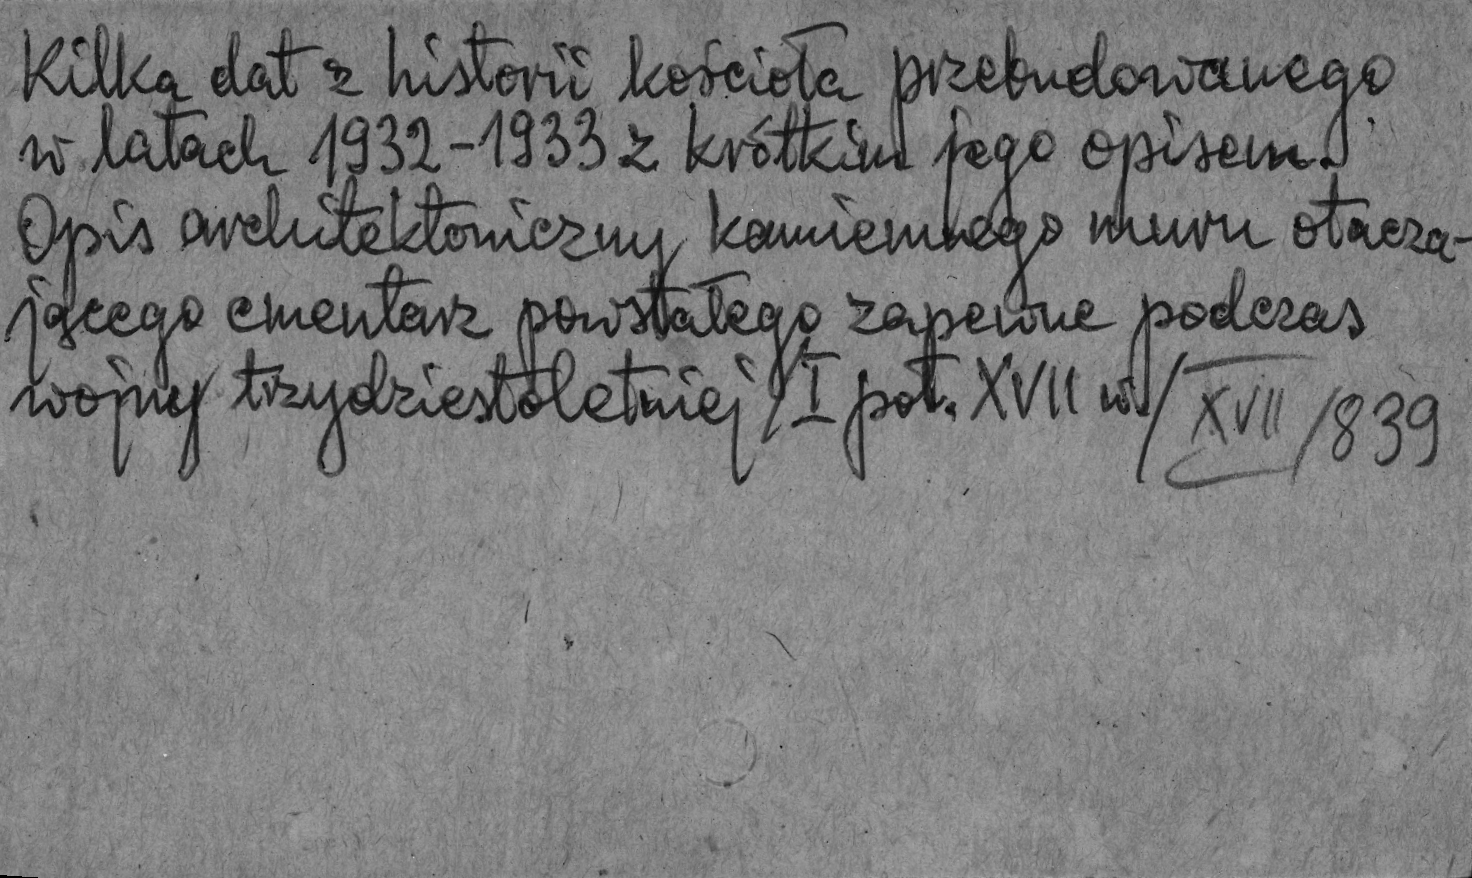 Kilka dat z historii kościoła przebudowanego
w latach 1932-1933 z krótkim jego opisem.
Opis architektoniczny kamiennego muru otacza-
jącego cmentarz powstałego zapewne podczas
wojny trzydziestoletniej /I poł. XVII w/ XVII/839